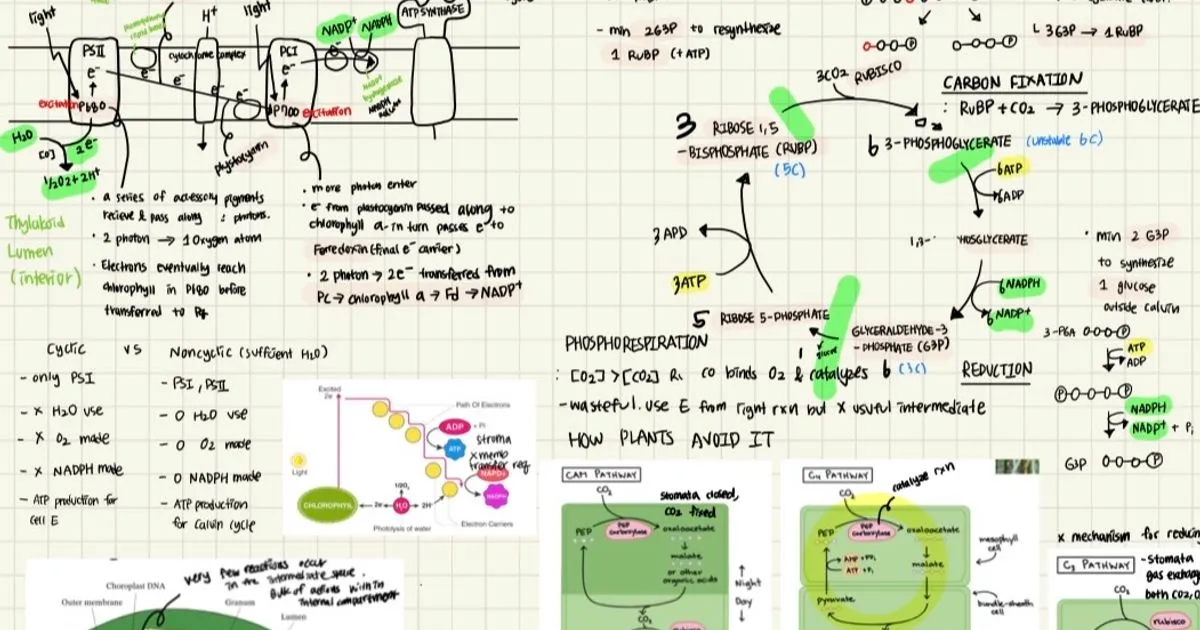 light
H+
light
NADP+
NADPH
ATP SYNTHASE
PSII
cytochrome complex
PCI
e-
e-
e-
e-
e-
e-
excitation P680
P700 excitation
H2O
[O]
2e-
1/2O2+2H+
plastocyanin
Thylakoid
Lumen
(interior)
• a series of accessory pigments
recieve & pass along photons.
• 2 photon → 1 Oxygen atom
• Electrons eventually reach
chlorophyll in P180 before
transferred to
• more photon enter
• e- from plastocyanin passed along to
chlorophyll a - in turn passes e- to
Ferredoxin (final e- carrier)
• 2 photon → 2e- transferred from
PC → chlorophyll a → Fd → NADP+
Cyclic vs Noncyclic (suffcient H2O)
- only PSI
- x H2O use
- x O2 made
- x NADPH made
- ATP production for
cell E
- PSI, PSII
- O H2O use
- O O2 made
- O NADPH made
- ATP production
for Calvin cycle
Excited
2e-
Path Of Electrons
ADP + Pi
ATP
stroma
x memb
transfer req
NADP+
NADPH
Light
1/2O2
CHLOROPHYLL
2e-
H2O
2H+
Photolysis of water
Electron Carriers
Choroplast DNA
Outer membrane
Granum
Lumen
very few reactions occur
in the intermediate space.
Bulk of actions within
internal compartment
- min 2G3P to resynthesize
1 RuBP (+ATP)
3CO2 RUBISCO
3 RIBOSE 1,5
-BISPHOSPHATE (RUBP)
(5C)
3 APD
3ATP
5 RIBOSE 5-PHOSPHATE
L 3G3P → 1 RUBP
CARBON FIXATION
: RUBP + CO2 → 3-PHOSPHOGLYCERATE
6 3-PHOSPHOGLYCERATE (unstable 6C)
6ATP
6ADP
HOSGLYCERATE
6NADPH
6NADP+
GLYCERALDEHYDE-3
-PHOSPHATE (G3P)
6 (3C)
1 glucose
REDUCTION
• min 2 G3P
to synthesize
1 glucose
outside calvin
3-PGA O-O-O-P
ATP
ADP
P-O-O-O-P
NADPH
NADP+ + Pi
G3P O-O-O-P
PHOSPHORESPIRATION
: [O2] > [CO2] co binds O2 & catalyzes
- wasteful. use E from right rxn but x useful intermediate
HOW PLANTS AVOID IT
CAM PATHWAY
CO2
stomata closed,
CO2 fixed
PEP
PEP carboxylase
oxaloacetate
malate
or other
organic acids
CO2
Night
Day
C4 PATHWAY
catalyze rxn
CO2
PEP
PEP carboxylase
oxaloacetate
AMP + PPi
ATP + Pi
malate
pyruvate
mesophyll
cell
bundle-sheath
cell
x mechanism for reducin
C3 PATHWAY
- Stomata
gas exchang
both CO2, O
CO2
rubisco